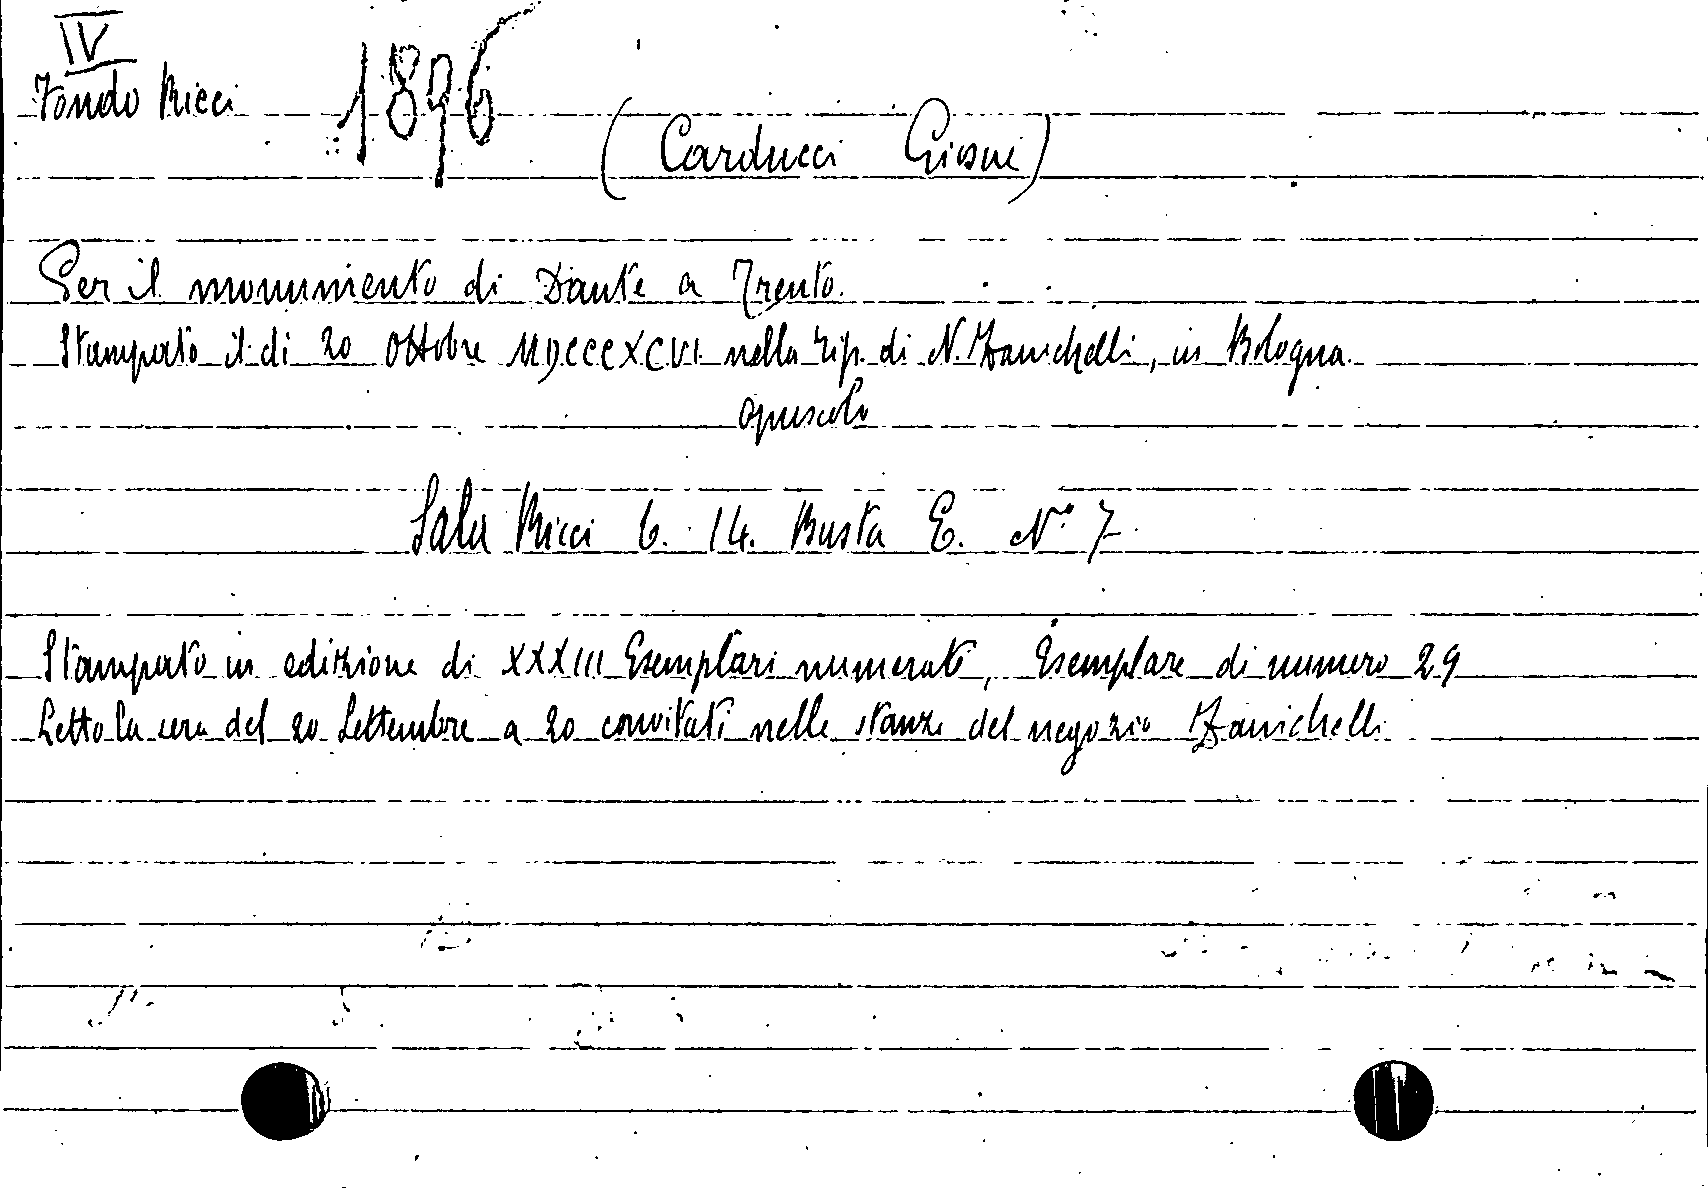 IV
Fondo Ricci 1896
(Carducci Giosue)
Per il monumento di Dante a Trento.
Stampato il dì 20 Ottobre MDCCCXCVI nella tip. di N. Zanichelli, in Bologna.
opuscolo
Sala Ricci 6. 14. Busta E. N.° 7
Stampato in edizione di XXXIII Esemplari numerati, Esemplare di numero 29
Letto la sera del 20 Settembre a 20 convitati nelle stanze del negozio Zanichelli